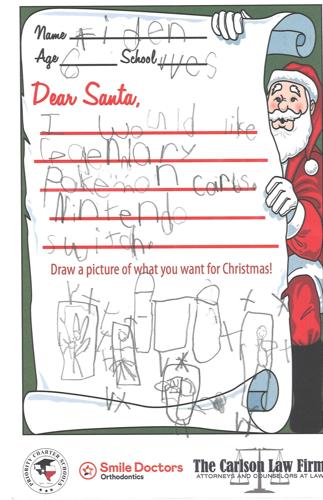 Name Aiden
Age 6 School WES
Dear Santa,
I would like
legendary
Pokémon cards.
Nintendo
switch.
Draw a picture of what you want for Christmas!
PRIORITY CHARTER SCHOOLS
Smile Doctors
Orthodontics
The Carlson Law Firm
ATTORNEYS AND COUNSELORS AT LAW